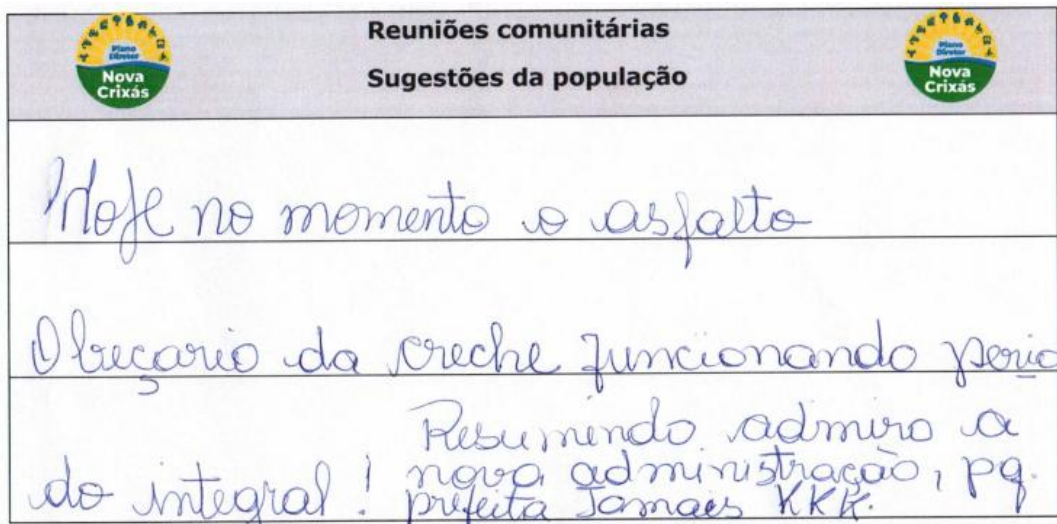 Plano
Diretor
Nova
Crixás
Reuniões comunitárias
Sugestões da população
Plano
Diretor
Nova
Crixás
Hoje no momento o asfalto
O beçario da creche funcionando perio
do integral! Resumindo admiro a
nova administração, pq.
prefeita Jamais KKK.